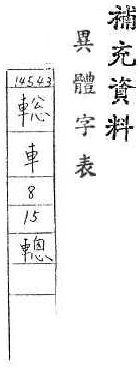 補充資料
異體字表
14543
車
8
15